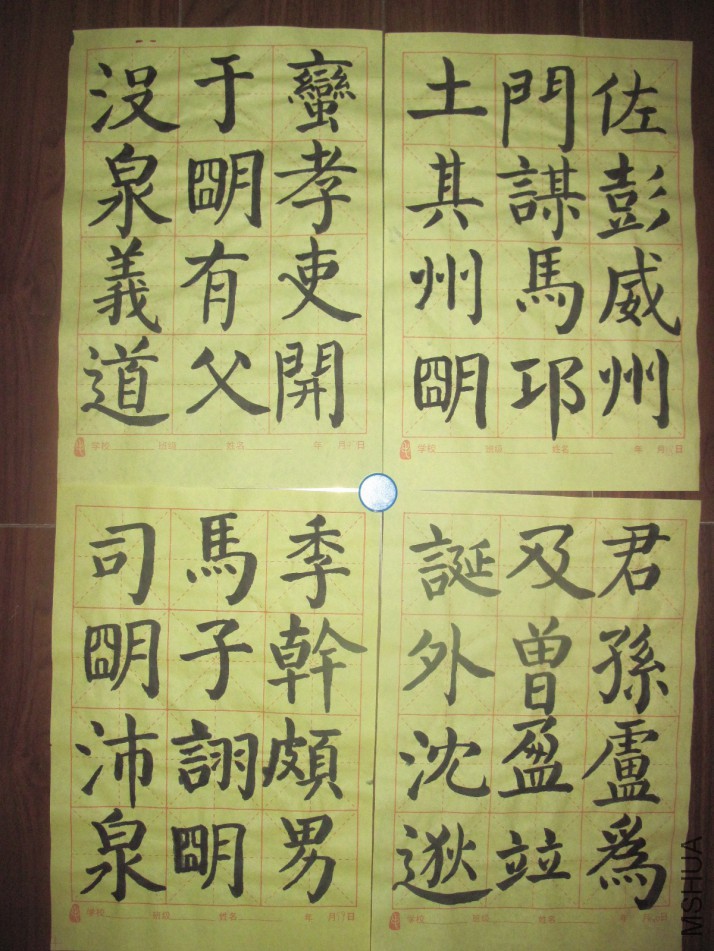 蠻孝吏開
于朙有父
没泉義道
学校 班级 姓名 年 月 日
佐彭威州
門謀馬邛
土其州朙
学校 班级 姓名 年 月 日
季幹頗男
馬子詡朙
司朙沛泉
学校 班级 姓名 年 月 日
君孫盧爲
及曾盈竝
誕外沈逖
学校 班级 姓名 年 月 日
MSHUA